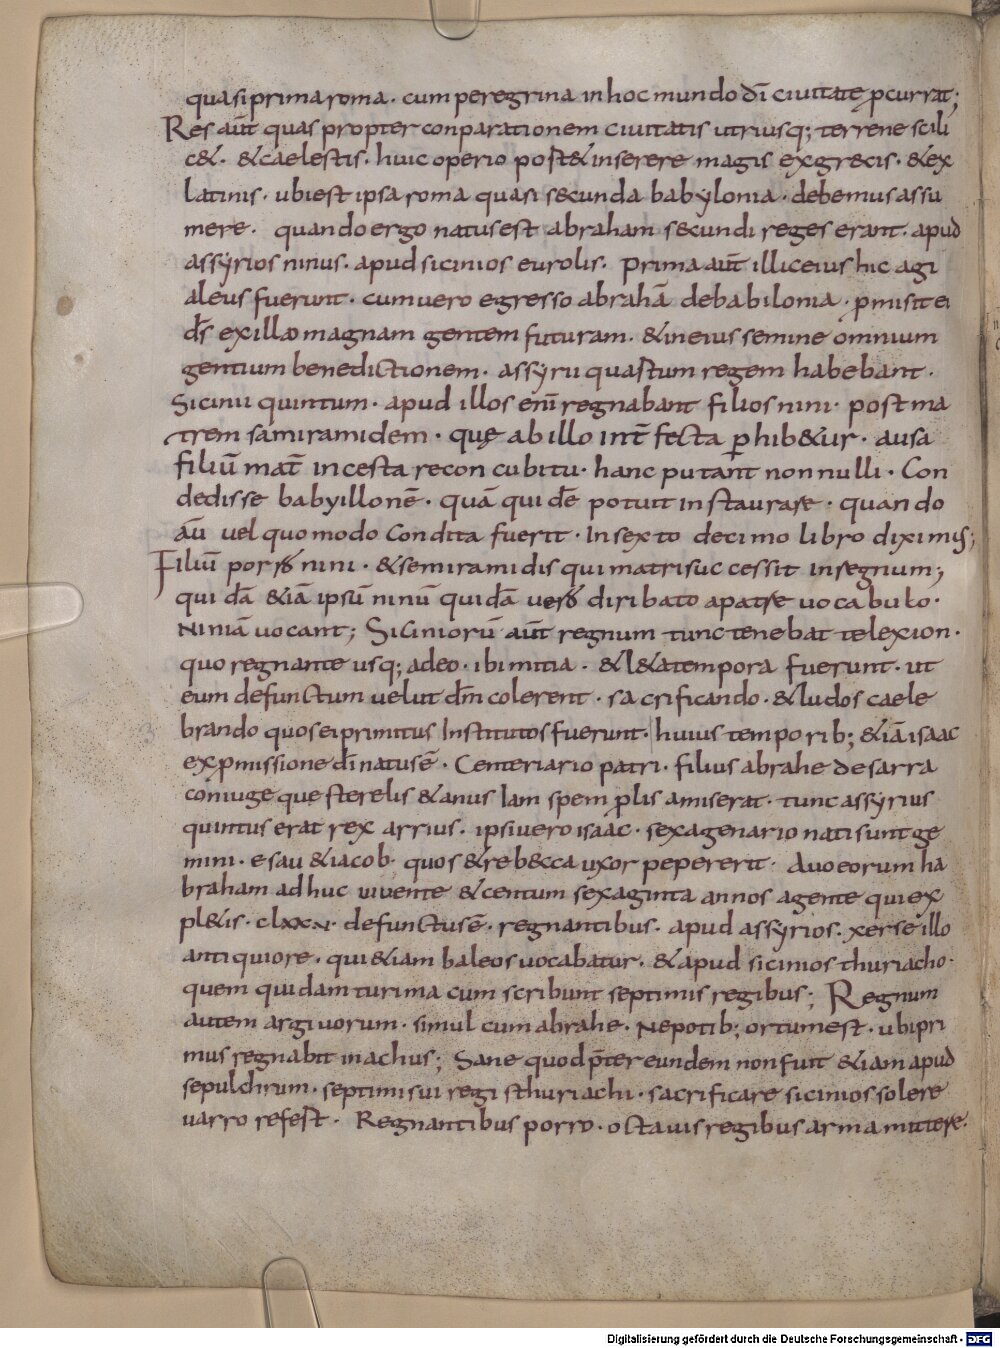 quasi prima roma · cum peregrina in hoc mundo dī ciuitate ꝑcurrat;
Res aut̄ quas propter conparationem ciuitatis utriusq; terrene scili
c& · & caelestis · huic operi o post& inserere magis ex grecis · & ex
latinis · ubi est ipsa roma quasi secunda babylonia · debemus assu
mere · quando ergo natus est abraham secundi reges erant · apud
assyrios ninus · apud sicinios eurolis · Prima aut̄ illic eius hic agi
aleus fuerunt · cum uero egresso abrahā de babilonia · ꝓmisit ei
d̄s ex illa o magnam gentem futuram · & in eius semine omnium
gentium benedictionem · assyrii quastum regem habebant ·
Sicinii quintum · apud illos eni regnabant filios nini · post ma
trem samiramidem · quę ab illo int̄fecta ꝑhib&ur · ausa
filiū mat̄ incesta reconcubitu · hanc putant nonnulli · Con
dedisse babyillonē · quā quidē potuit instaurare · quando
aū uel quomodo Condita fuerit · In sexto decimo libro diximus;
Filiū porro nini · & semiramidis qui matri succcessit in regnum;
quidā &iā ipsū ninū quidā uero diribato a patre uocabulo ·
Niniā uocant; Siciniorū aut̄ regnum tunc tenebat telexion ·
quo regnante usq; adeo · ibi mitia · & l&a tempora fuerunt · ut
eum defunctum uelut dm̄ colerent · sacrificando · & ludos caele
brando quos ei primitus Institutos fuerunt · huius temporib; &iā isaac
ex ꝓmissione dī natus ē · Centeriario patri · filius abrahe de sarra
coniuge que sterelis & anus Iam spem ꝓlis amiserat · tunc assyrius
quintus erat rex arrius · ipsi uero isaac · sexagenario nati sunt ge
mini · esau & iacob · quos & rebecca uxor pepererit · Auo eorum ha
braham adhuc uiuente & centum sexaginta annos agente qui ex
pl&is · clxxv · defunctus ē · regnantibus · apud assyrios · xerse illo
antiquiore · qui &iam baleos uocabatur · & apud sicinios thuriacho ·
quem quidam turimacum scribunt septimis regibus; Regnum
autem argiuorum · simul cum abrahe · Nepotib; ortum est · ubi pri
mus regnabit inachus; Sane quod p̄tereundem non fuit &iam apud
sepulchrum · septimi sui regis thuriachi · sacrificare sicinios solere
uarro refest · Regnantibus porro · octauis regibus arma mittere ·
Digitalisierung gefördert durch die Deutsche Forschungsgemeinschaft · DFG